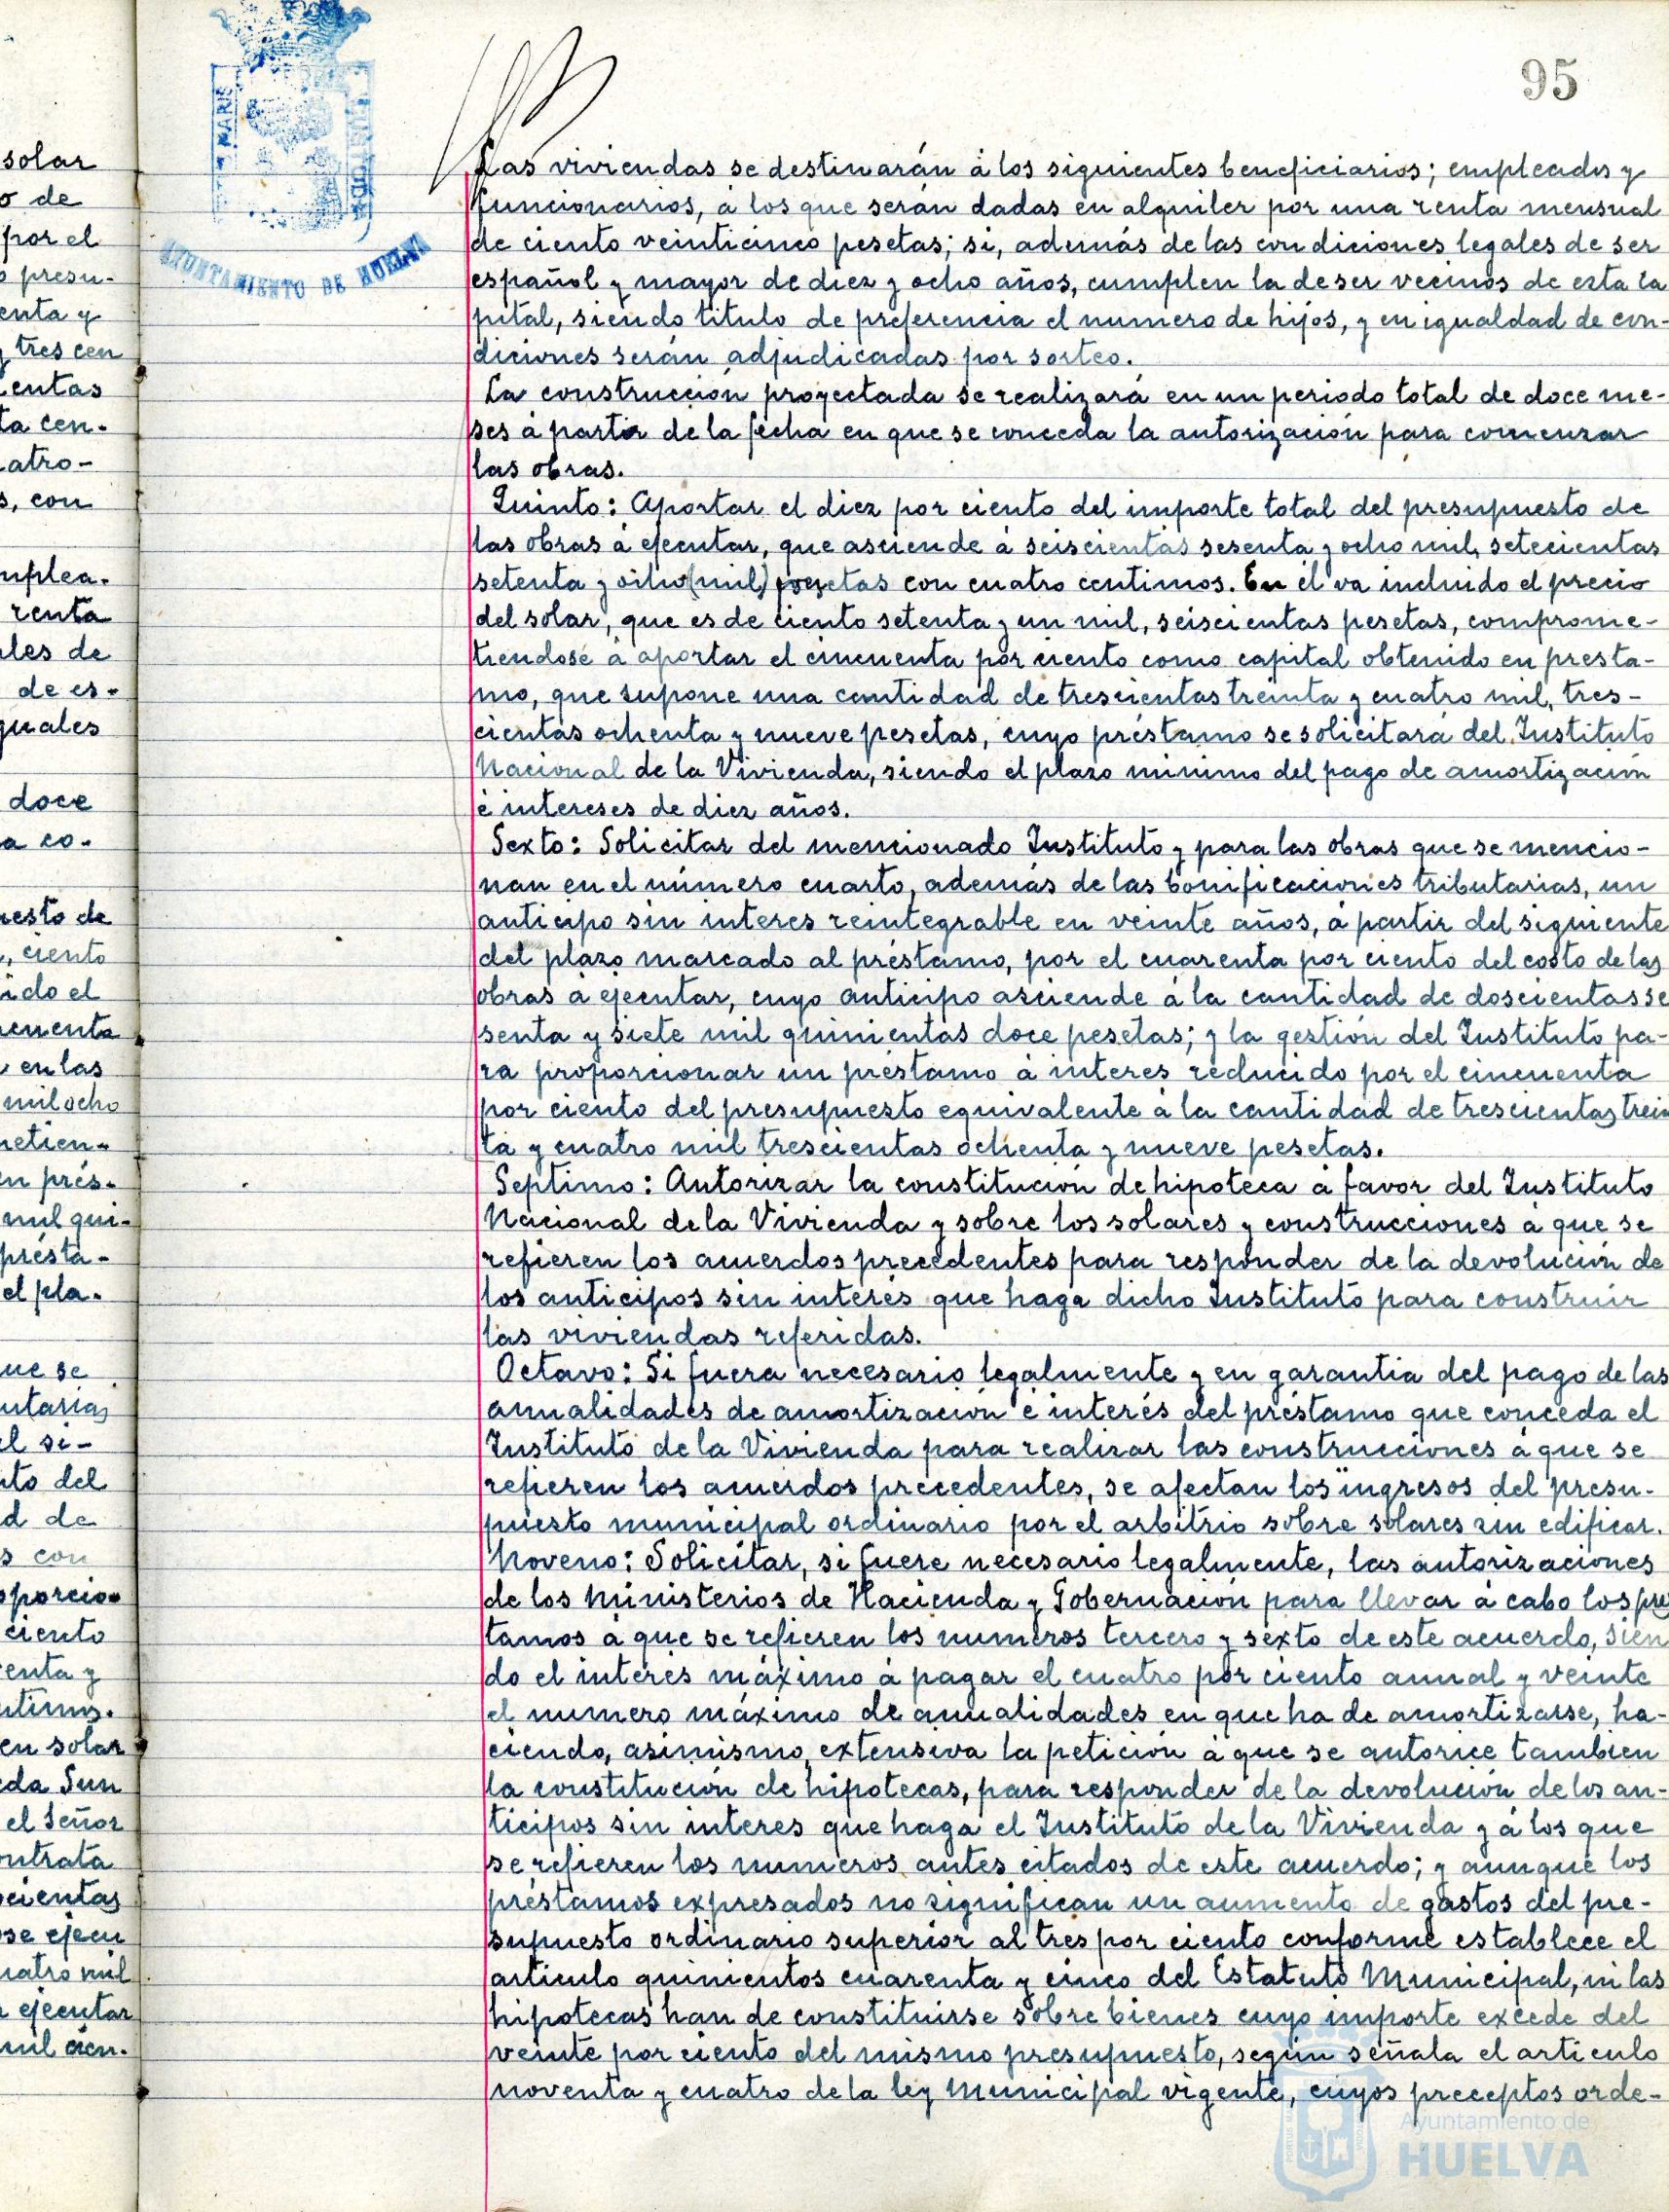 95
PORTUS MARIS
CUSTODIA
AYUNTAMIENTO DE HUELVA
solar
o de
por el
o presu-
enta y
y tres cen
entas
ta cen-
atro-
s, con
mplea-
renta
ales de
de es-
guales
doce
a co-
uesto de
, ciento
ido el
cuenta
en las
mil ocho
metien-
en prés-
mil qui-
présta-
el pla-
que se
utarias
el si-
nto del
d de
s con
oporcio-
ciento
enta y
ntimos.
en solar
eda Sun
el Señor
ontrata
scientas
ose ejecu
uatro mil
a ejecutar
mil cien-
Las viviendas se destinarán á los siguientes beneficiarios; empleados y
funcionarios, á los que serán dadas en alquiler por una renta mensual
de ciento veinticinco pesetas; si, además de las condiciones legales de ser
español y mayor de diez y ocho años, cumplen la de ser vecinos de esta ca
pital, siendo titulo de preferencia el numero de hijos, y en igualdad de con-
diciones serán adjudicadas por sorteo.
La construcción proyectada se realizará en un periodo total de doce me-
ses á partir de la fecha en que se conceda la autorización para comenzar
las obras.
Quinto: Aportar el diez por ciento del importe total del presupuesto de
las obras á ejecutar, que asciende á seiscientas sesenta y ocho mil, setecientas
setenta y ocho (mil) pesetas con cuatro centimos. En él va incluido el precio
del solar, que es de ciento setenta y un mil, seiscientas pesetas, comprome-
tiendose á aportar el cincuenta por ciento como capital obtenido en presta-
mo, que supone una cantidad de trescientas treinta y cuatro mil, tres-
cientas ochenta y nueve pesetas, cuyo préstamo se solicitará del Instituto
Nacional de la Vivienda, siendo el plazo minimo del pago de amortización
é intereses de diez años.
Sexto: Solicitar del mencionado Instituto y para las obras que se mencio-
nan en el número cuarto, además de las bonificaciones tributarias, un
anticipo sin interes reintegrable en veinte años, á partir del siguiente
del plazo marcado al préstamo, por el cuarenta por ciento del costo de las
obras á ejecutar, cuyo anticipo asciende á la cantidad de doscientas se
senta y siete mil quinientas doce pesetas; y la gestión del Instituto pa-
ra proporcionar un préstamo á interes reducido por el cincuenta
por ciento del presupuesto equivalente á la cantidad de trescientas trein
ta y cuatro mil trescientas ochenta y nueve pesetas.
Septimo: Autorizar la constitución de hipoteca á favor del Instituto
Nacional de la Vivienda y sobre los solares y construcciones á que se
refieren los acuerdos precedentes para responder de la devolución de
los anticipos sin interés que haga dicho Instituto para construir
las viviendas referidas.
Octavo: Si fuera necesario legalmente y en garantia del pago de las
anualidades de amortización é interés del préstamo que conceda el
Instituto de la Vivienda para realizar las construcciones á que se
refieren los acuerdos precedentes, se afectan los ingresos del presu-
puesto municipal ordinario por el arbitrio sobre solares sin edificar.
Noveno: Solicitar, si fuere necesario legalmente, las autorizaciones
de los Ministerios de Hacienda y Gobernación para llevar á cabo los pres
tamos á que se refieren los numeros tercero y sexto de este acuerdo, sien
do el interés máximo á pagar el cuatro por ciento anual y veinte
el numero máximo de anualidades en que ha de amortizarse, ha-
ciendo, asimismo, extensiva la petición á que se autorice tambien
la constitución de hipotecas, para responder de la devolución de los an-
ticipos sin interes que haga el Instituto de la Vivienda y á los que
se refieren los numeros antes citados de este acuerdo; y aunque los
préstamos expresados no significan un aumento de gastos del pre-
supuesto ordinario superior al tres por ciento conforme establece el
articulo quinientos cuarenta y cinco del Estatuto Municipal, ni las
hipotecas han de constituirse sobre bienes cuyo importe excede del
veinte por ciento del mismo presupuesto, según señala el articulo
noventa y cuatro de la ley Municipal vigente, cuyos preceptos orde-
Ayuntamiento de
HUELVA